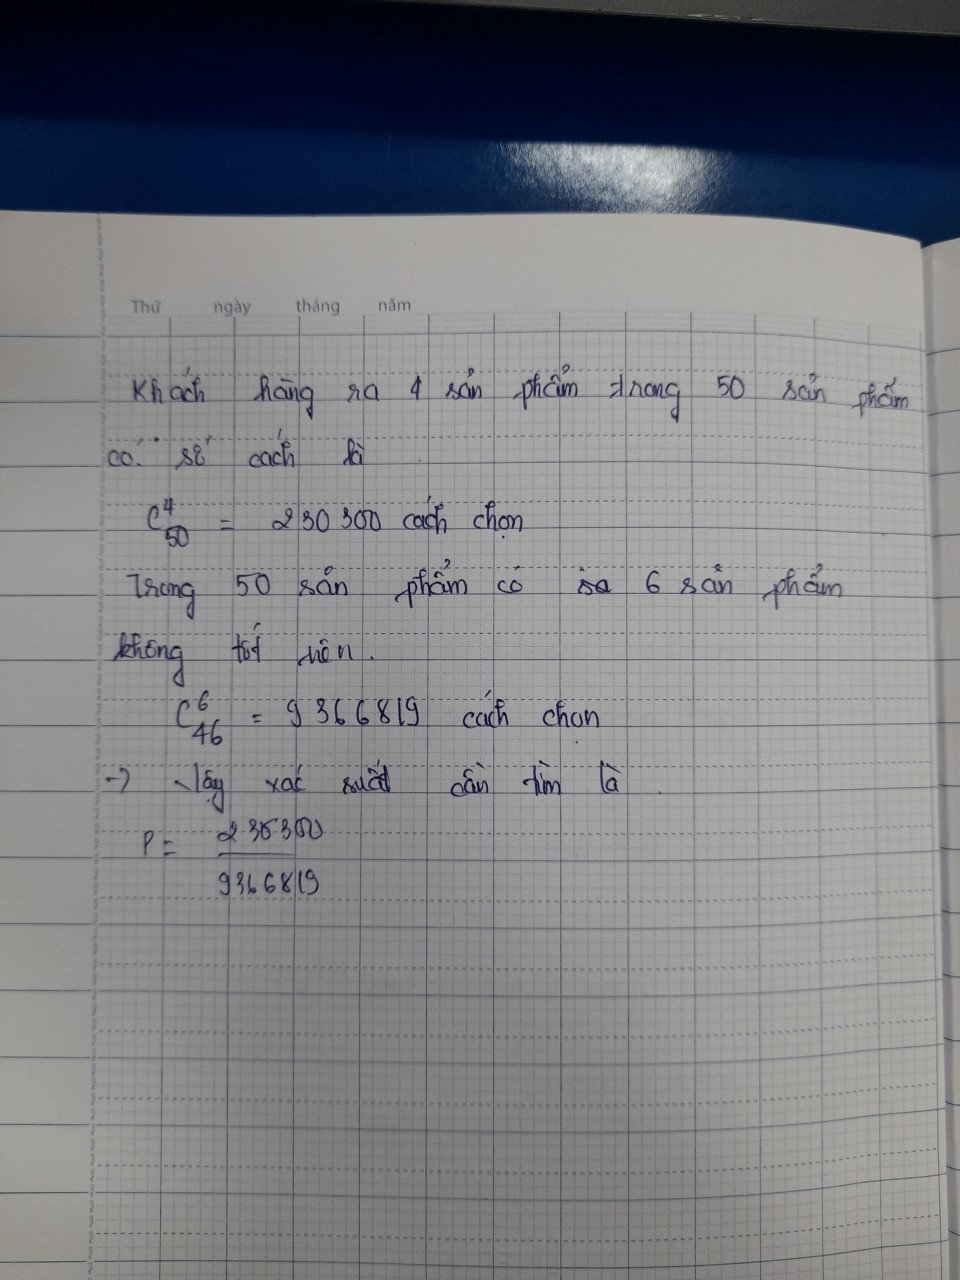 Thứ ngày tháng năm
Khách hàng ra 4 sản phẩm trong 50 sản phẩm
có số cách là
C⁴₅₀ = 230300 cách chọn
Trong 50 sản phẩm có 6 sản phẩm
không tốt nên.
C⁶₄₆ = 9366819 cách chọn
→ Vậy xác suất cần tìm là
P = 230300 / 9366819